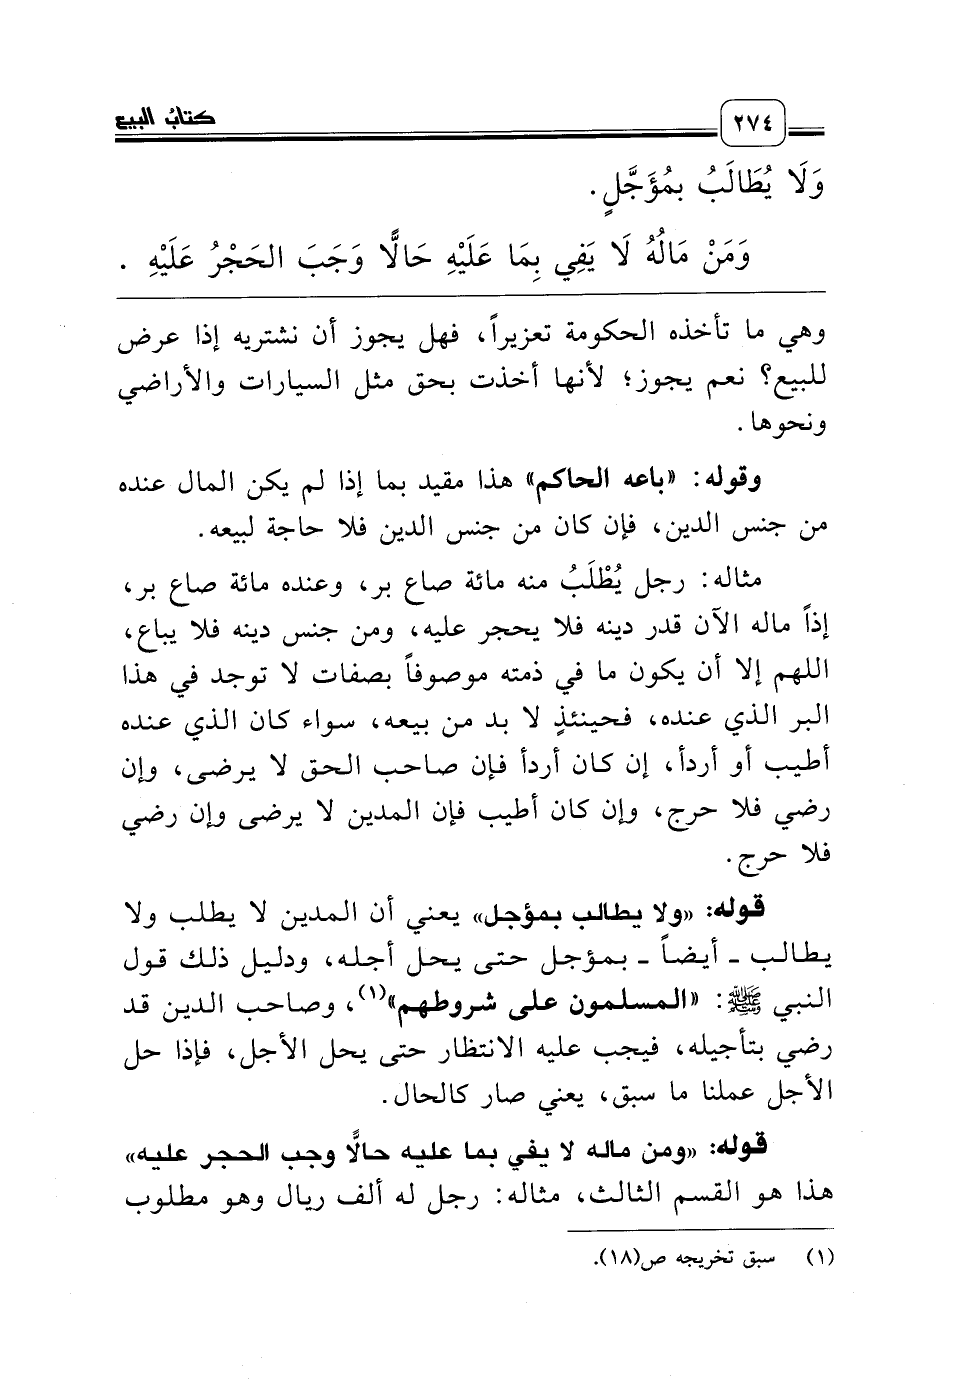 ٢٧٤
كتاب البيع
وَلَا يُطَالَبُ بِمُؤَجَّلٍ.
وَمَنْ مَالُهُ لَا يَفِي بِمَا عَلَيْهِ حَالًّا وَجَبَ الحَجْرُ عَلَيْهِ .
وهي ما تأخذه الحكومة تعزيراً، فهل يجوز أن نشتريه إذا عرض
للبيع؟ نعم يجوز؛ لأنها أخذت بحق مثل السيارات والأراضي
ونحوها.
وقوله: «باعه الحاكم» هذا مقيد بما إذا لم يكن المال عنده
من جنس الدين، فإن كان من جنس الدين فلا حاجة لبيعه.
مثاله: رجل يُطْلَبُ منه مائة صاع بر، وعنده مائة صاع بر،
إذاً ماله الآن قدر دينه فلا يحجر عليه، ومن جنس دينه فلا يباع،
اللهم إلا أن يكون ما في ذمته موصوفاً بصفات لا توجد في هذا
البر الذي عنده، فحينئذٍ لا بد من بيعه، سواء كان الذي عنده
أطيب أو أردأ، إن كان أردأ فإن صاحب الحق لا يرضى، وإن
رضي فلا حرج، وإن كان أطيب فإن المدين لا يرضى وإن رضي
فلا حرج.
قوله: «ولا يطالب بمؤجل» يعني أن المدين لا يطلب ولا
يطالب ـ أيضاً ـ بمؤجل حتى يحل أجله، ودليل ذلك قول
النبي ﷺ: «المسلمون على شروطهم»(١)، وصاحب الدين قد
رضي بتأجيله، فيجب عليه الانتظار حتى يحل الأجل، فإذا حل
الأجل عملنا ما سبق، يعني صار كالحال.
قوله: «ومن ماله لا يفي بما عليه حالًّا وجب الحجر عليه»
هذا هو القسم الثالث، مثاله: رجل له ألف ريال وهو مطلوب
(١) سبق تخريجه ص(١٨).